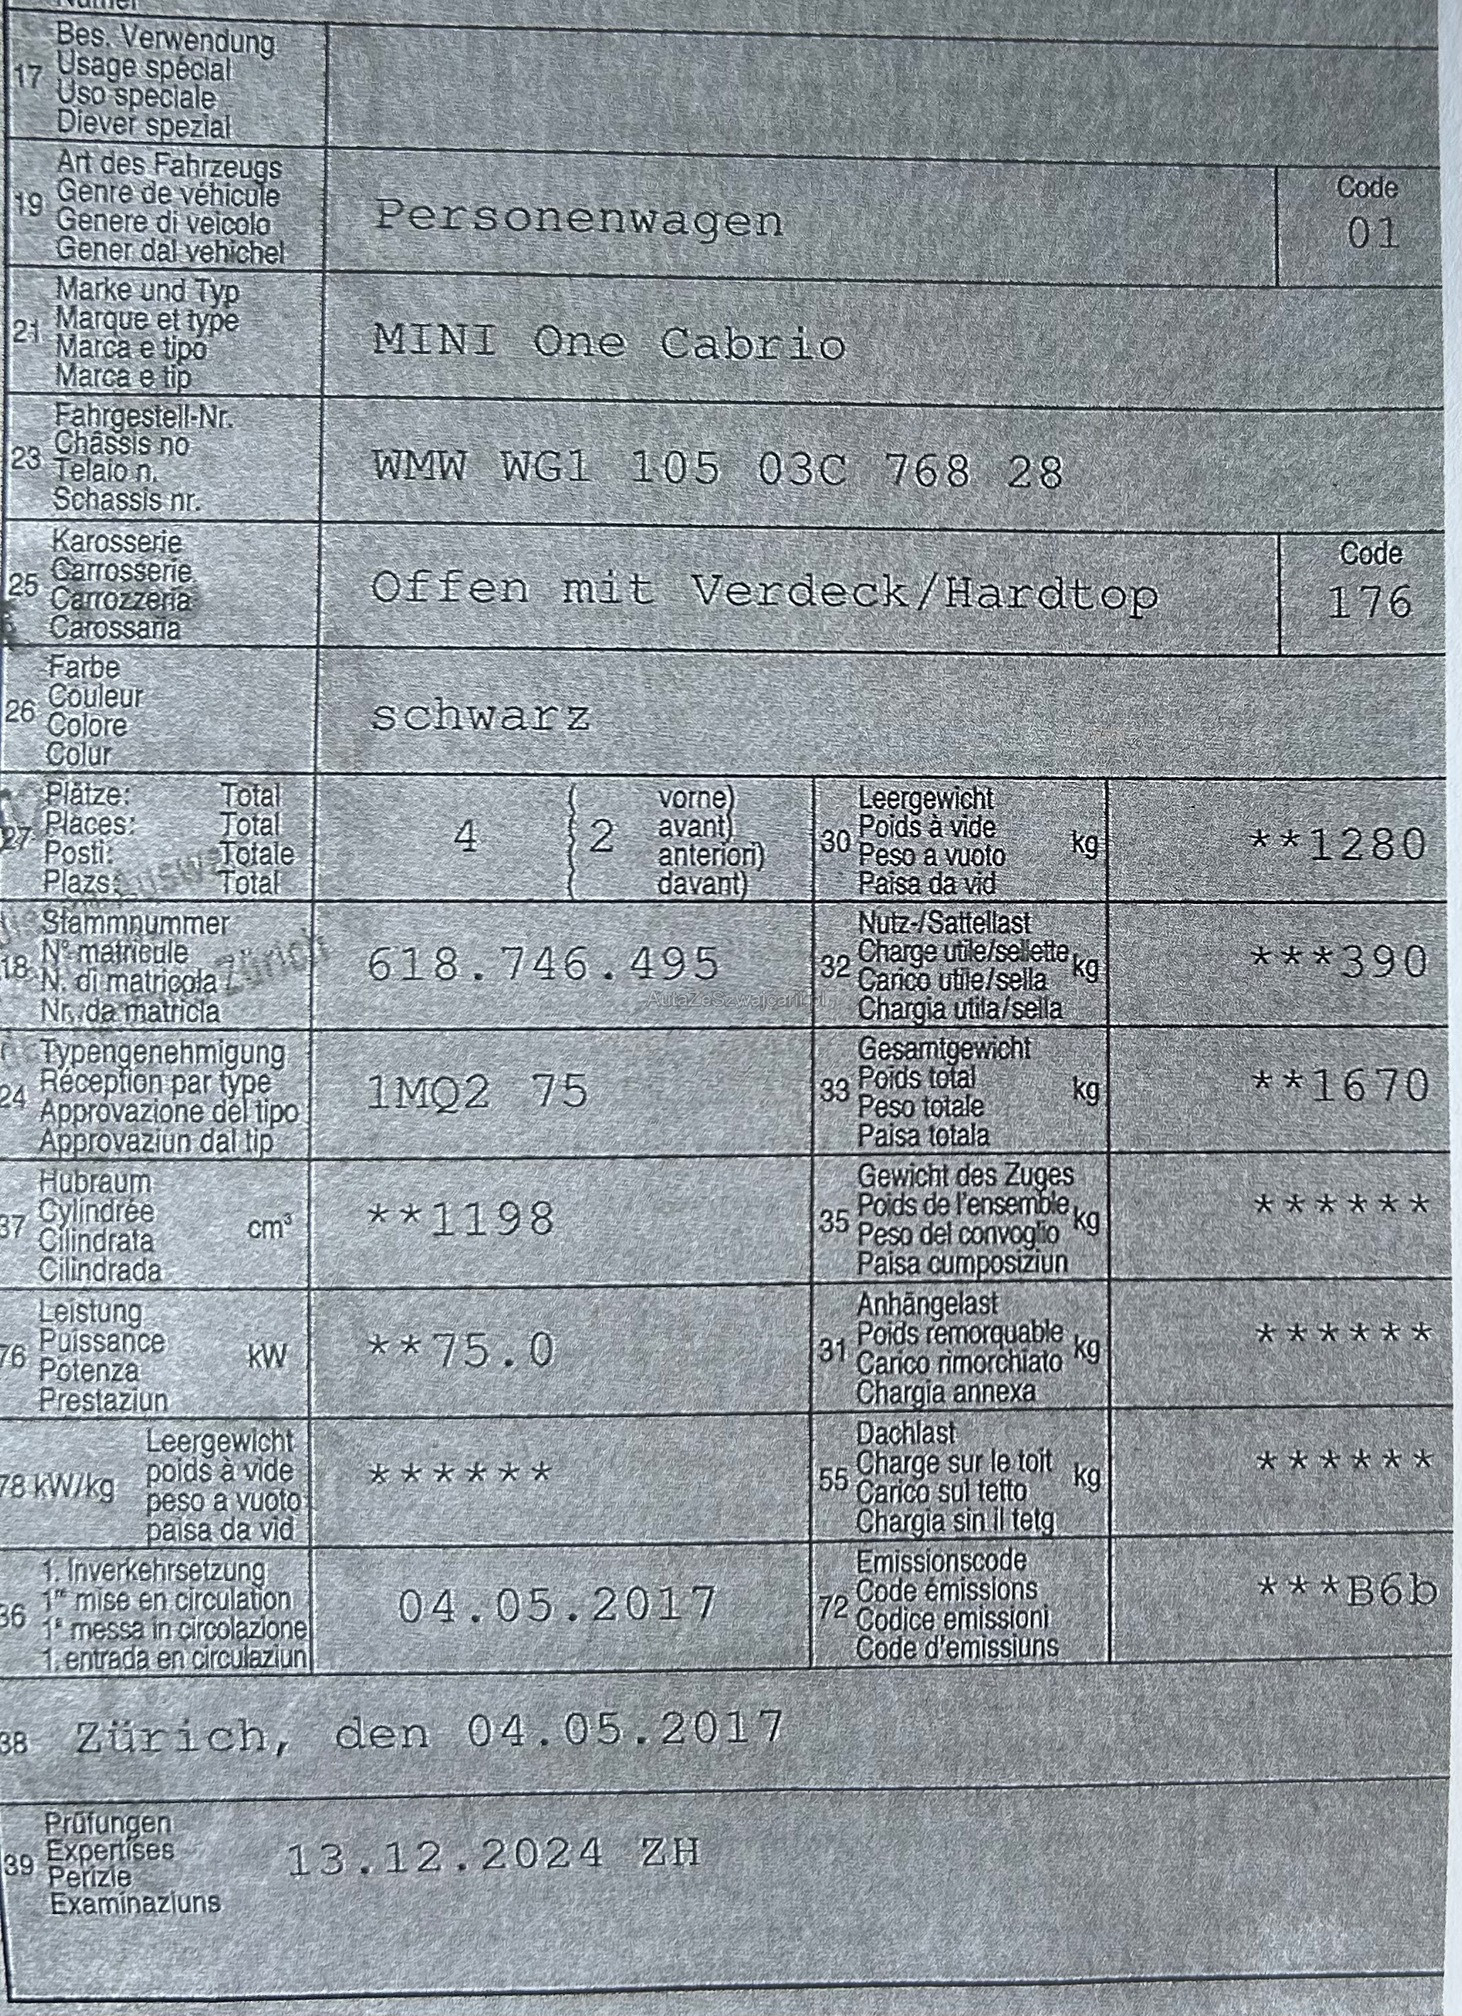 17 Bes. Verwendung
Usage spécial
Uso speciale
Diever spezial
19 Art des Fahrzeugs
Genre de véhicule
Genere di veicolo
Gener dal vehichel
Personenwagen
Code
01
21 Marke und Typ
Marque et type
Marca e tipo
Marca e tip
MINI One Cabrio
23 Fahrgestell-Nr.
Châssis no
Telaio n.
Schassis nr.
WMW WG1 105 03C 768 28
25 Karosserie
Carrosserie
Carrozzeria
Carossaria
Offen mit Verdeck/Hardtop
Code
176
26 Farbe
Couleur
Colore
Colur
schwarz
27 Plätze: Total
Places: Total
Posti: Totale
Plazs: Total
4 { 2
vorne)
avant)
anteriori)
davant)
30 Leergewicht
Poids à vide
Peso a vuoto
Paisa da vid
kg
**1280
18 Stammnummer
N° matricule
N. di matricola
Nr. da matricla
Zürich
618.746.495
32 Nutz-/Sattellast
Charge utile/sellette
Carico utile/sella
Chargia utila/sella
kg
***390
24 Typengenehmigung
Réception par type
Approvazione del tipo
Approvaziun dal tip
1MQ2 75
33 Gesamtgewicht
Poids total
Peso totale
Paisa totala
kg
**1670
37 Hubraum
Cylindrée
Cilindrata
Cilindrada
cm³
**1198
35 Gewicht des Zuges
Poids de l'ensemble
Peso del convoglio
Paisa cumposiziun
kg
******
76 Leistung
Puissance
Potenza
Prestaziun
kW
**75.0
31 Anhängelast
Poids remorquable
Carico rimorchiato
Chargia annexa
kg
******
78 kW/kg
Leergewicht
poids à vide
peso a vuoto
paisa da vid
******
55 Dachlast
Charge sur le toit
Carico sul tetto
Chargia sin il tetg
kg
******
36 1. Inverkehrsetzung
1re mise en circulation
1a messa in circolazione
1. entrada en circulaziun
04.05.2017
72 Emissionscode
Code émissions
Codice emissioni
Code d'emissiuns
***B6b
38 Zürich, den 04.05.2017
39 Prüfungen
Expertises
Perizie
Examinaziuns
13.12.2024 ZH